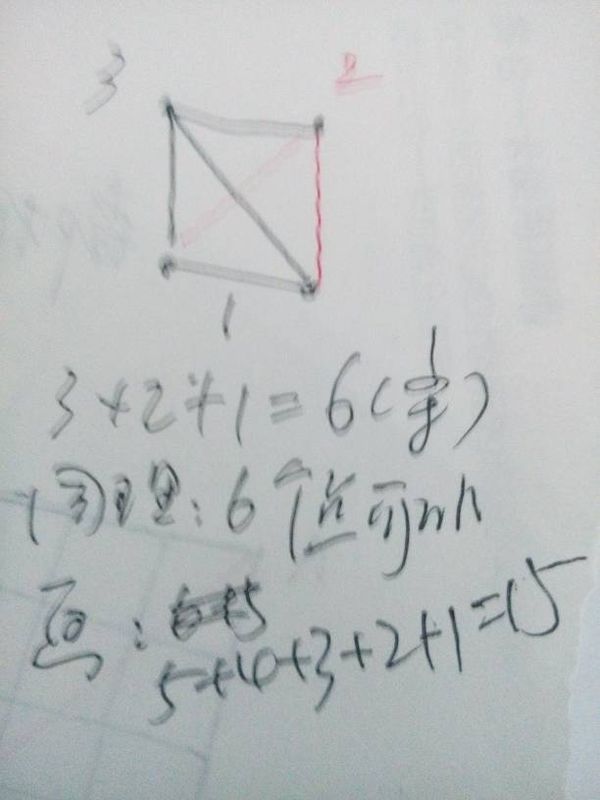 3 2
1
3+2+1=6(条)
同理:6个点可以
画:
5+4+3+2+1=15